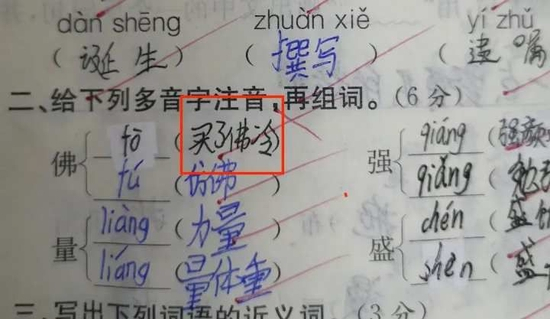 dàn shēng zhuàn xiě yí zhǔ
(诞生) (撰写) (遗嘱)
二、给下列多音字注音,再组词。(6分)
佛 fó (买了佛冷) 强 qiáng (强颜
fú (仿佛) qiǎng (勉
量 liàng (力量) 盛 chén (盛
liáng (量体重) shèn (盛
三、写出下列词语的近义词。(3分)